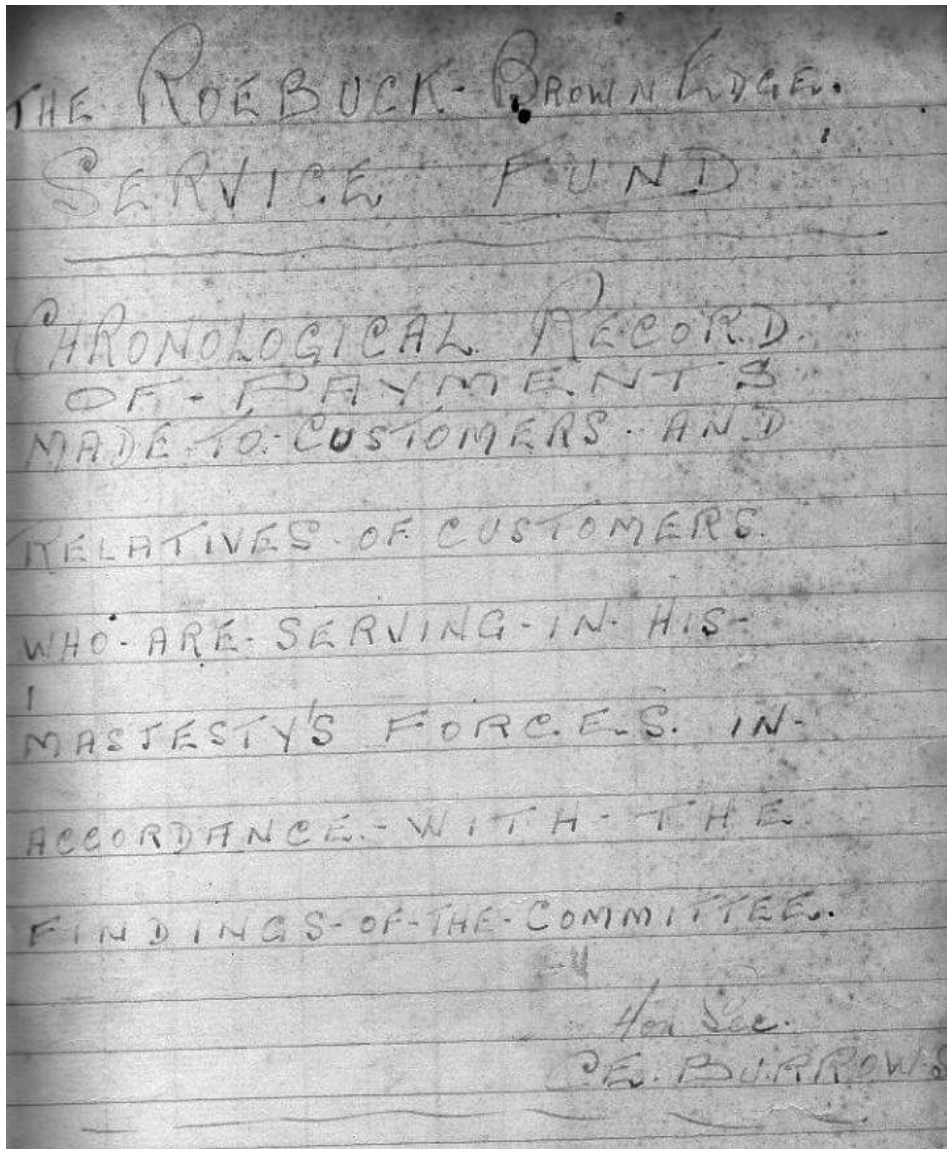 THE ROEBUCK - BROWN EDGE.
SERVICE FUND
CHRONOLOGICAL RECORD.
OF - PAYMENTS
MADE TO CUSTOMERS - AND
RELATIVES - OF CUSTOMERS.
WHO - ARE - SERVING - IN - HIS -
MASJESTY'S FORC.E.S. IN -
ACCORDANCE - WITH - THE
FINDINGS - OF - THE - COMMITTEE.
Hon Sec.
C.E. BURROWS